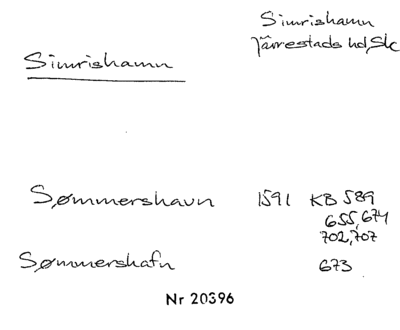 Simrishamn
Järrestads hd, Sk
Simrishamn
Sømmershavn 1591 KB 589
655, 674
702, 707
Sømmershafn 673
Nr 20396